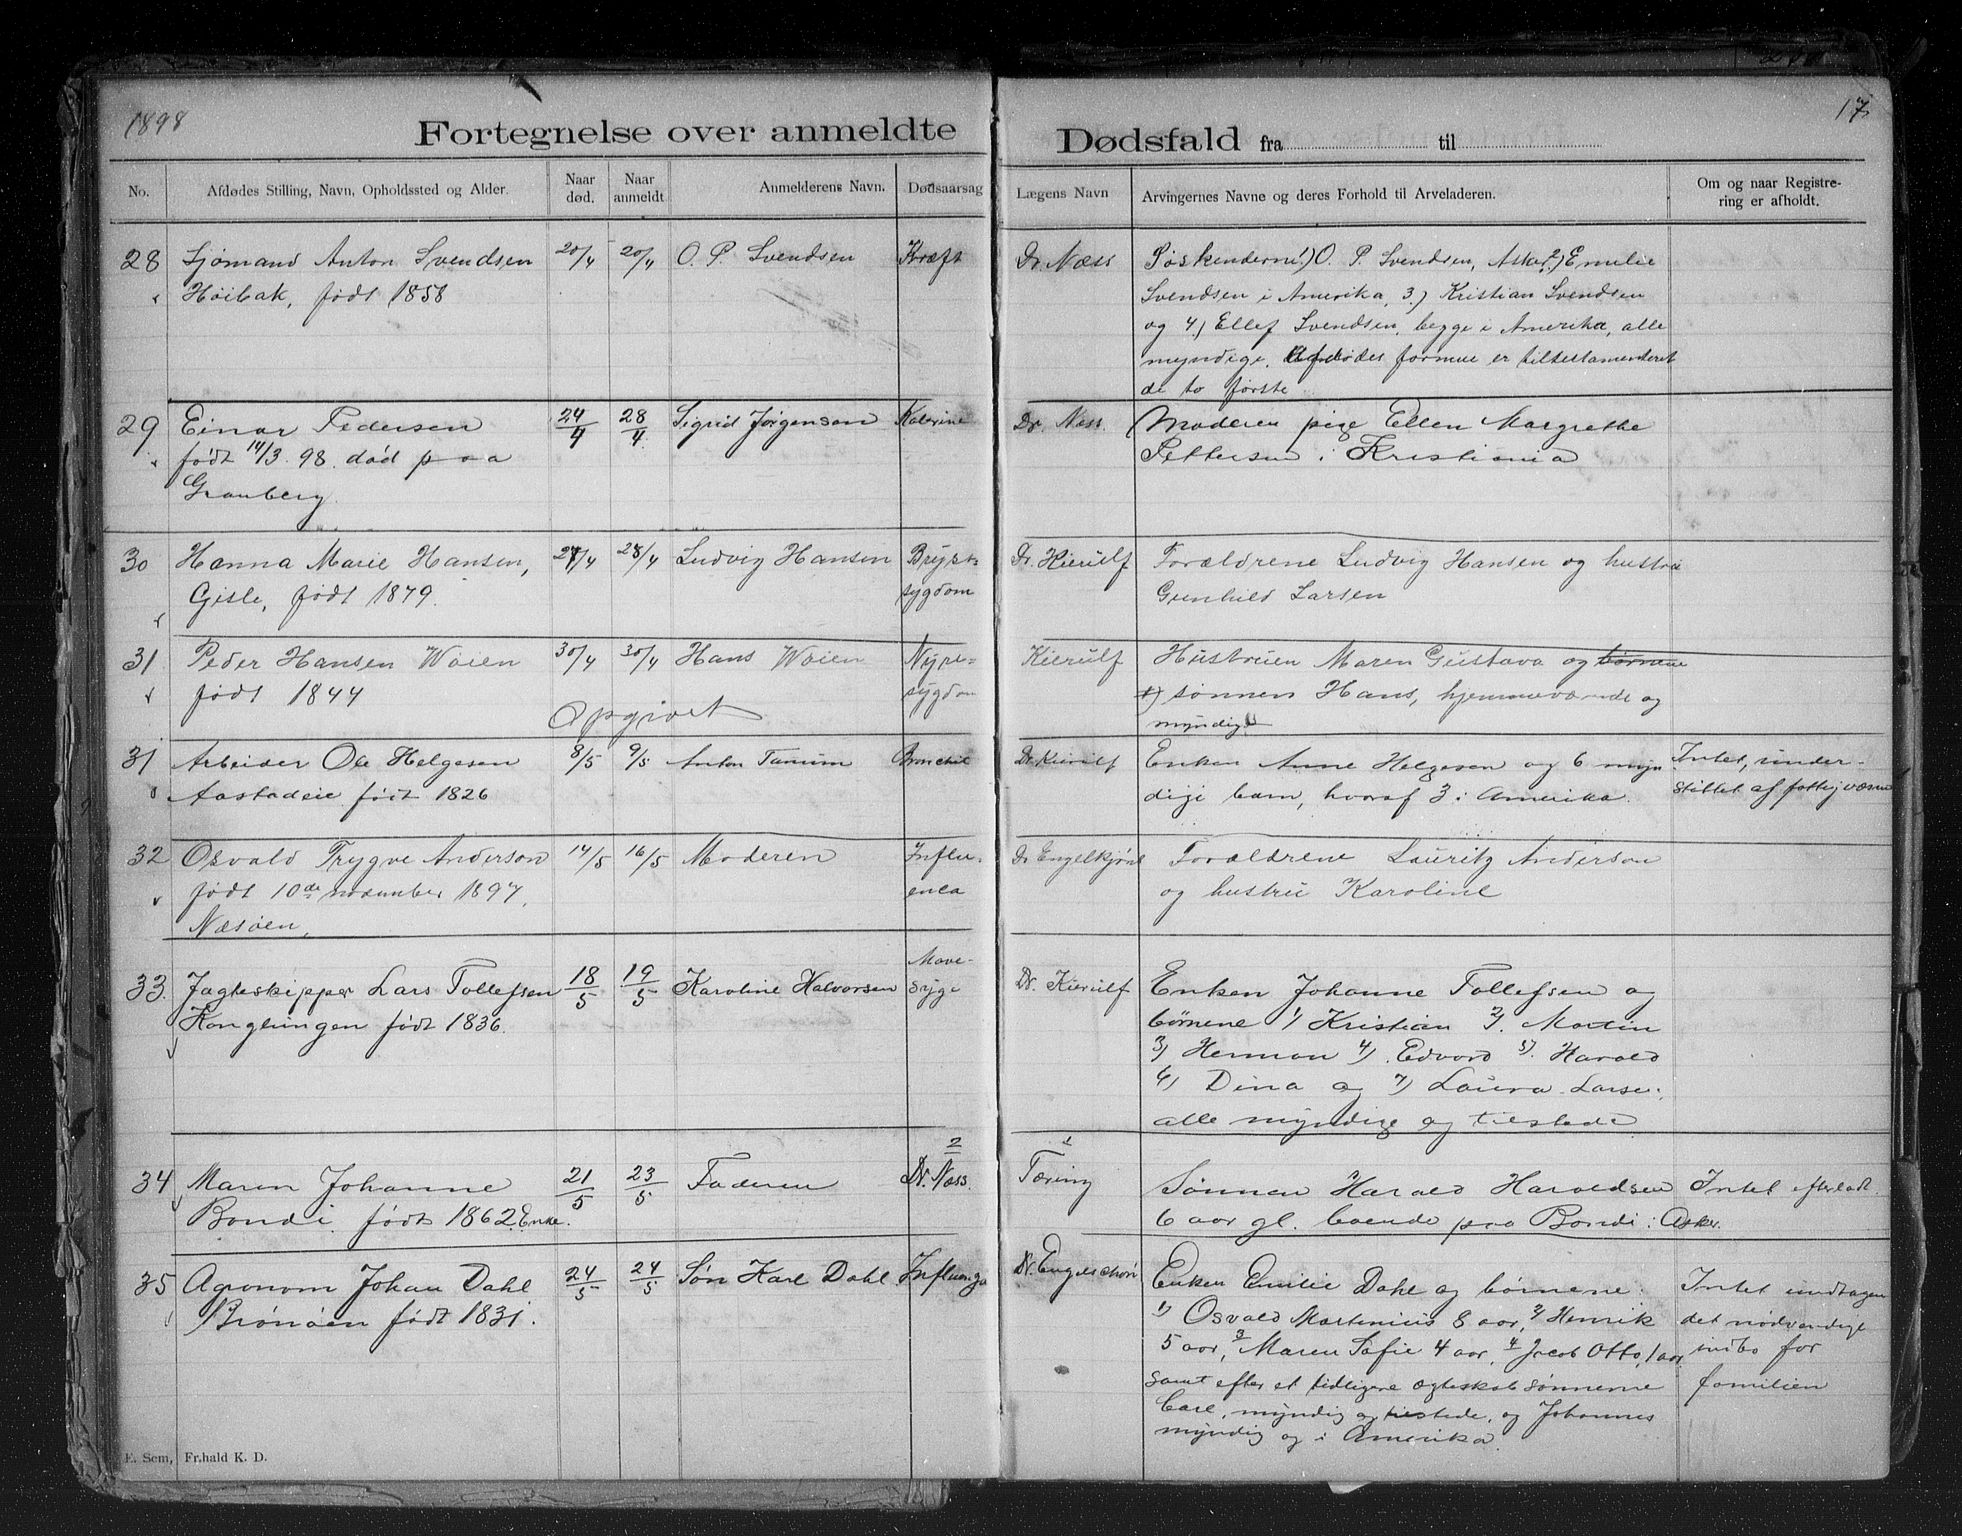 1898
17
Fortegnelse over anmeldte Dødsfald fra til
No.
Afdødes Stilling, Navn, Opholdssted og Alder.
Naar død.
Naar anmeldt
Anmelderens Navn.
Dødsaarsag
Lægens Navn
Arvingernes Navne og deres Forhold til Arveladeren.
Om og naar Registre-
ring er afholdt.
28 Sjømand Anton Svendsen 20/4 20/4 O. P. Svendsen Kræft Dr Næss Søskenderne 1) O. P. Svendsen, Asker 2) Emelie
Høibak, født 1858 Svendsen i Amerika, 3) Kristian Svendsen
og 4) Ellef Svendsen, begge i Amerika, alle
myndige. Afdødes formue er tiltestamenteret
de to første
29 Einar Pedersen 24/4 28/4 Sigrid Jørgensen Kolerine Dr. Næss. Moderen pige Ellen Margrethe
født 14/3 98. død paa Pettersen i Kristiania
Granberg
30 Hanna Marie Hansen, 27/4 28/4 Ludvig Hansen Bryst- Dr. Kierulf Forældrene Ludvig Hansen og hustru
Gisle, født 1879. sygdom Gunhild Larsen
31 Peder Hansen Wøien 30/4 30/4 Hans Wøien Nyre- Kierulf Hustruen Maren Gustava og børnene
født 1844 sygdom 1) sønnen Hans, hjemmeværende og
Opgivet myndige
31 Arbeider Ole Helgesen 8/5 9/5 Anton Tanum Bronchit Dr Kierulf Enken Anne Helgesen og 6 myn Intet, under-
Aastaddeie født 1826 dige barn, hvoraf 3 i Amerika. støttet af fattigvæsen
32 Osvald Trygve Anderson 14/5 16/5 Moderen Influ- Dr Engelskjøn Forældrene Lauritz Anderson
født 10de november 1897, enca og hustru Karoline
Næsøen,
33. Jagteskipper Lars Tollefsen 18/5 19/5 Karoline Halvorsen Mave-
syge Dr. Kierulf Enken Johanne Tollefsen og
Konglungen født 1836. børnene 1) Kristian 2). Martin
3) Herman 4). Edvard 5). Harald
6) Dina og 7) Laura Larse.
alle myndige og tilstede
34 Maren Johanne 21/5 23/5 Faderen 2 Dr. Næss. 1 Tæring Sønnen 1) Harald Haraldsen Intet efterladt.
Bondi født 1862. Enke. 6 aar gl. boende paa Bondi i Asker.
35 Agronom Johan Dahl 24/5 24/5 Søn Karl Dahl Influenza Dr. Engelschøn Enken Emilie Dahl og børnene: Intet undtagen
Brønøen født 1831. 1) Osvald Martinius 8 aar, 2) Henrik det nødvendige
5 aar, 3 Maren Sofie 4 aar, 4 Jacob Otto, 1 aar indbo for
samt efter et tidligere ægteskab sønnerne familien
Carl, myndig og tilstede, og Johannes
myndig og i Amerika.
E. Sem, Fr.hald K. D.